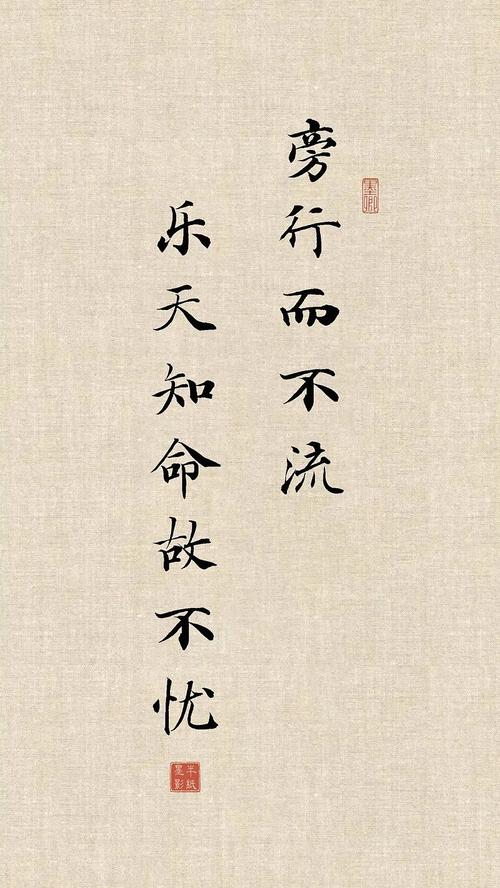 墨卿
旁行而不流
乐天知命故不忧
半纸
墨影